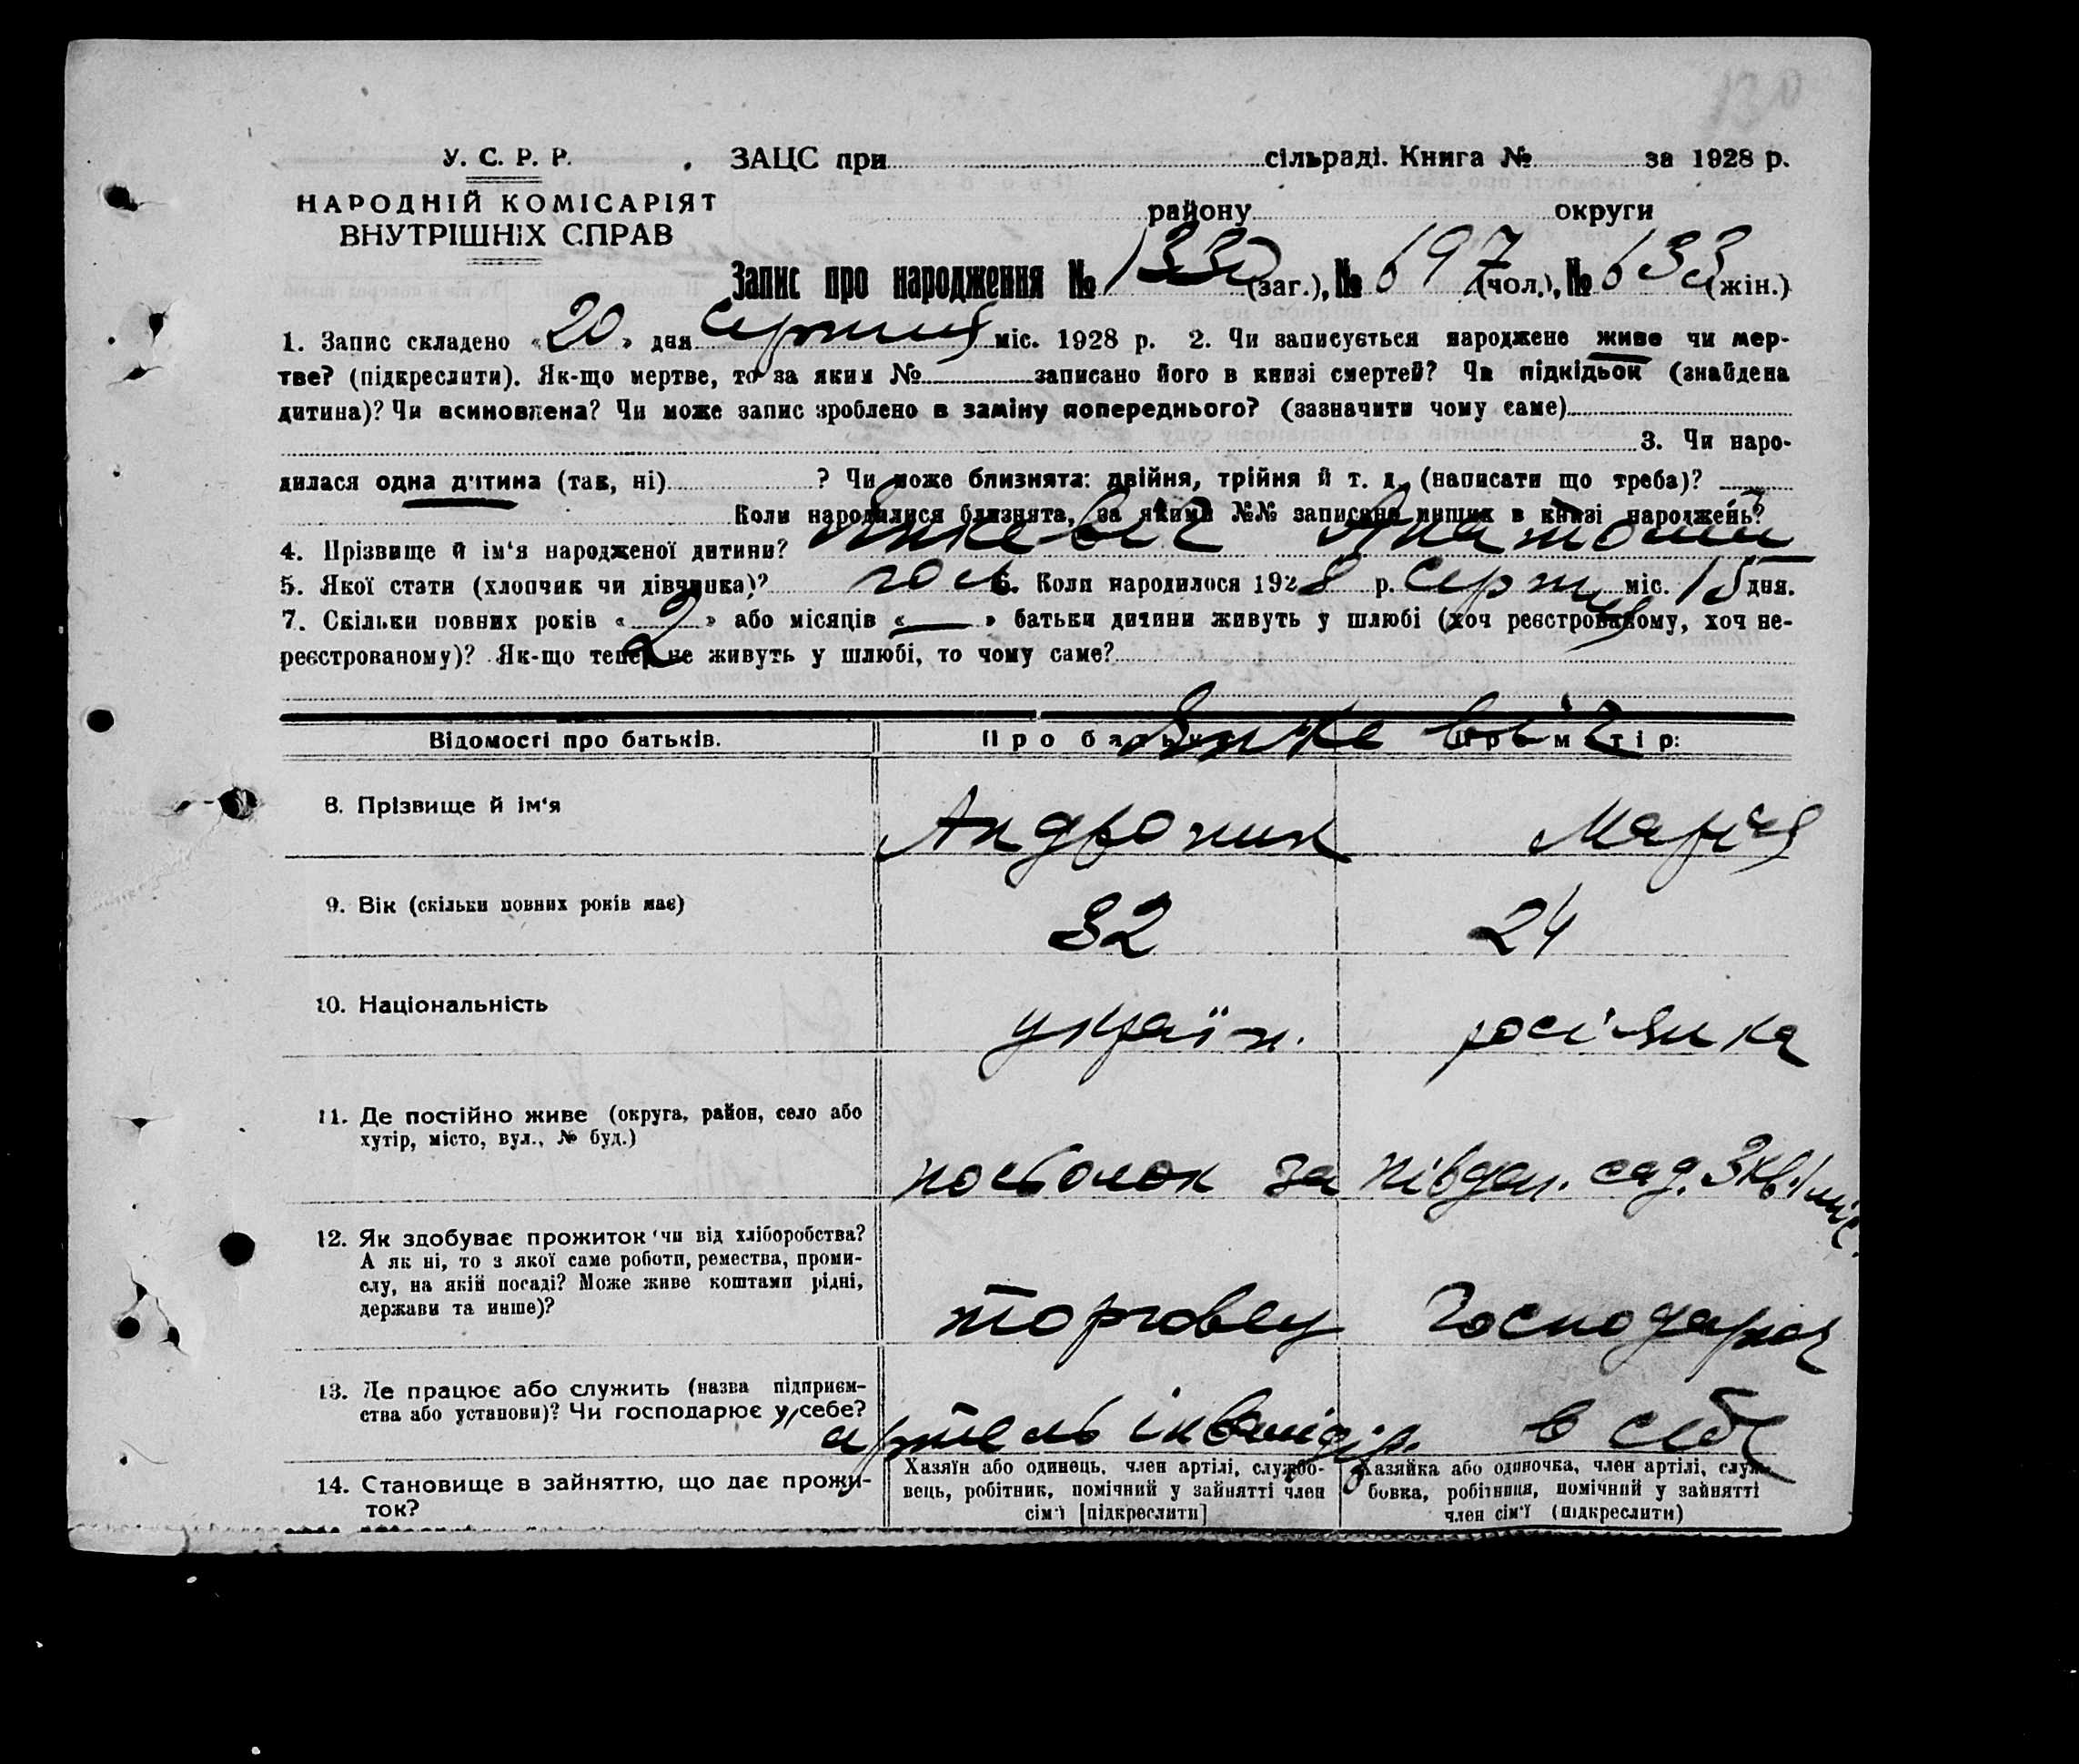 130
У. С. Р. Р. ЗАЦС при сільраді. Книга № за 1928 р.
НАРОДНІЙ КОМІСАРІЯТ
ВНУТРІШНІХ СПРАВ
району округи
Запис про народження № 1330 (заг.), № 697 (чол.), № 633 (жін.)
1. Запис складено « 20 » дня серпня міс. 1928 р. 2. Чи записується народжене живе чи мер-
тве? (підкреслити). Як-що мертве, то за яким № записано його в книзі смертей? Чи підкідьок (знайдена
дитина)? Чи всиновлена? Чи може запис зроблено в заміну попереднього? (зазначити чому саме)
3. Чи наро-
дилася одна дитина (так, ні) ? Чи може близнята: двійня, трійня й т. д. (написати що треба)?
Коли народилися близнята, за якими №№ записано инших в книзі народжень?
4. Прізвище й ім'я народженої дитини? Янкевіч Анатолій
5. Якої стати (хлопчик чи дівчинка)? чол 6. Коли народилося 1928 р. серпня міс. 15 дня.
7. Скільки повних років « 2 » або місяців « — » батьки дитини живуть у шлюбі (хоч реєстрованому, хоч не-
реєстрованому)? Як-що тепер не живуть у шлюбі, то чому саме?
Янкевіч
Відомості про батьків. Про батька: Про матір:
8. Прізвище й ім'я Андроник Марія
9. Вік (скільки повних років має) 32 24
10. Національність україн. росіянка
11. Де постійно живе (округа, район, село або
хутір, місто, вул., № буд.)
посьолок за півден. сад. 3 кв.
12. Як здобуває прожиток чи від хліборобства?
А як ні, то з якої саме роботи, ремества, проми-
слу, на якій посаді? Може живе коштами рідні,
держави та инше)?
торговец Господарка
13. Де працює або служить (назва підприєм-
ства або установи)? Чи господарює у себе?
артель інвалідів. в себе
14. Становище в зайняттю, що дає прожи-
ток?
Хазяїн або одинець, член артілі, службо-
вець, робітник, помічний у зайнятті член
сім'ї [підкреслити]
Хазяйка або одиночка, член артілі, служ-
бовка, робітниця, помічний у зайнятті
член сім'ї (підкреслити)